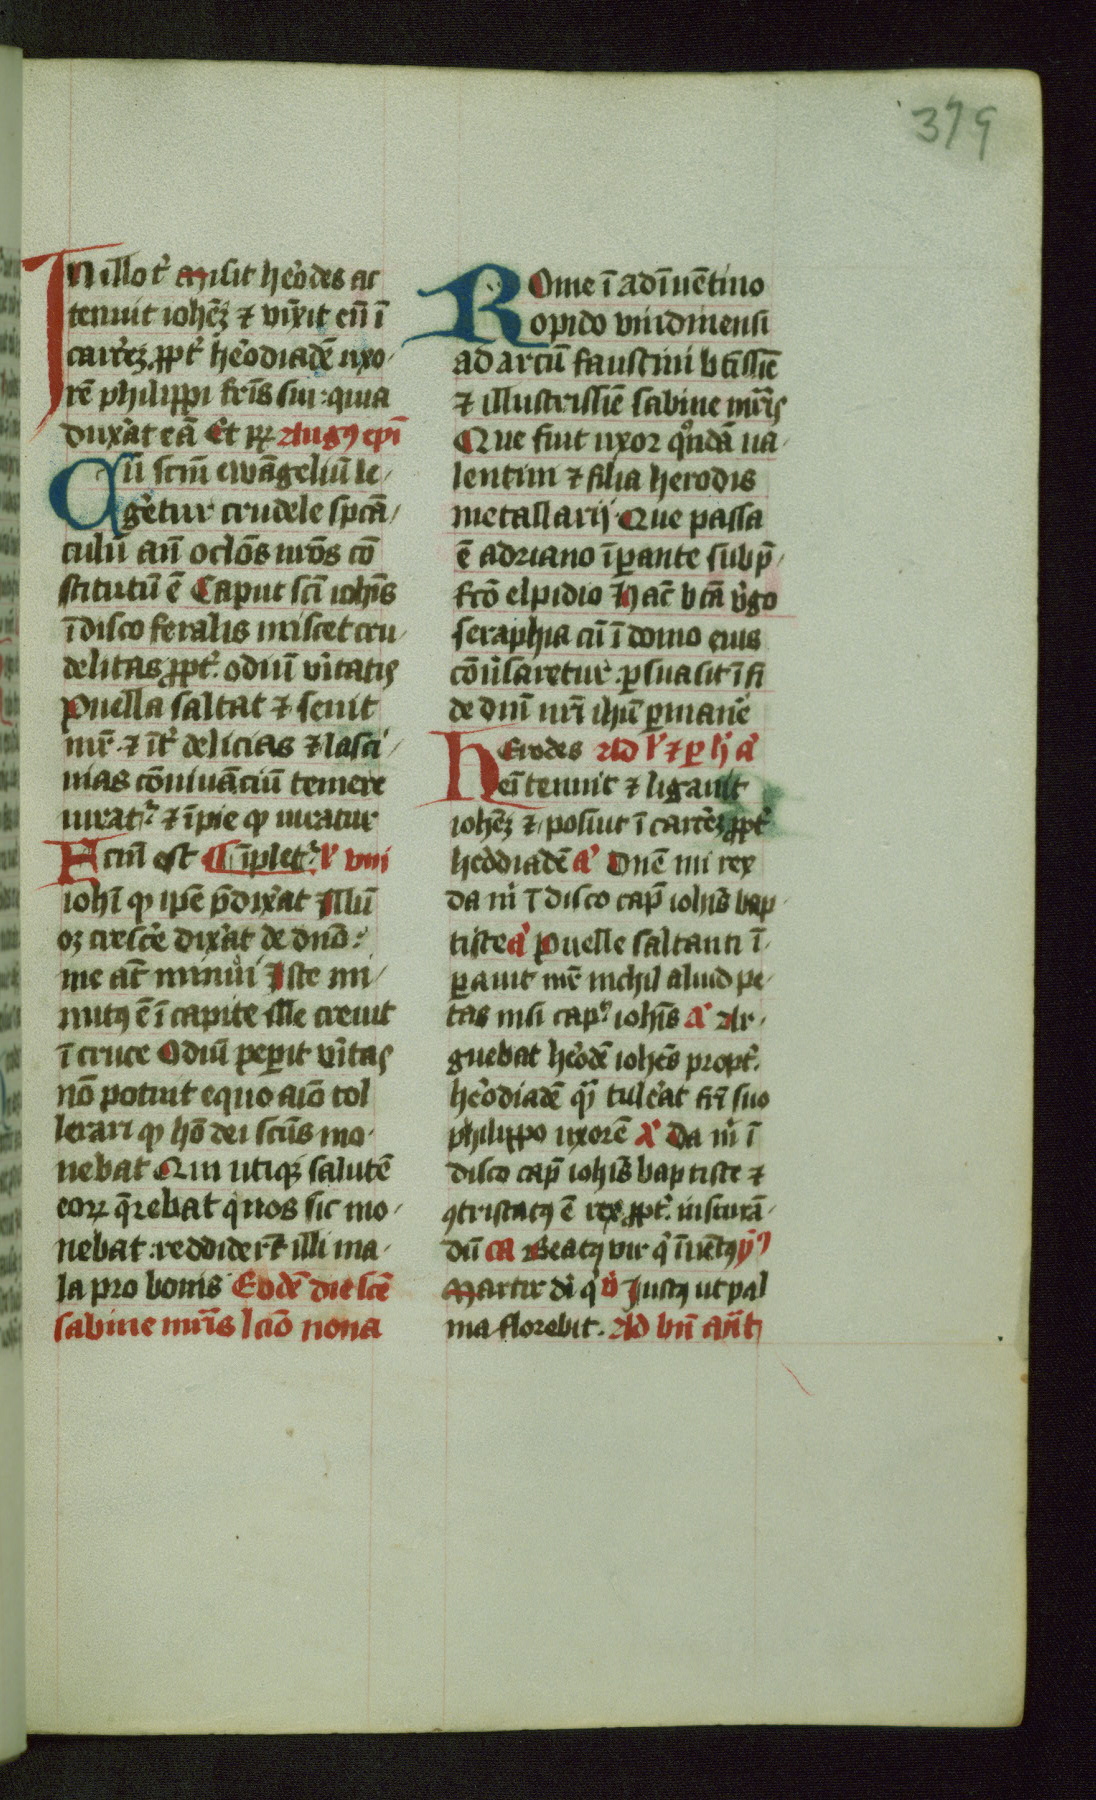 379
In illo t᷑ misit he᷑odes ac
tenuit iohēȝ ⁊ vīxit eū ī
carc᷑eȝ ꝓpt᷑ he᷑odiadē uxo-
rē philippi fr̄is sui · quia
duxat eā Et rꝫ Augꝰ ep̄i
Cū scm̄ ewāgeliū le/
ge᷑tur crudele spcā/
culū an̄ oclōs nrōs cō
stitutū ē Caput scī iohīs
ī disco feralis miscet cru/
delitas ꝓpt᷑ odiū v᷑itatis
Puella saltat ⁊ seuit
mr̄ ⁊ īt᷑ delicias ⁊ lasci/
uias cōuiuāciū temere
iurat᷑ ⁊ īpie qꝫ iuratur
Ectū est īplet᷑ l᷑ viii
iohī qꝫ ipe p̄dixat Illū
oȝ cresce᷑ dixat de dn̄o ·
me at̄ minui Iste mi/
nutꝰ ē ī capite ille creuit
ī cruce Odiū pepit v᷑itas
nō potuit equo aīo tol
lerari qꝫ hō dei scūs mo-
nebat Qui utiqꝫ salutē
eoꝝ q̄rebat quos sic mo/
nebat · reddider̄t illi ma/
la pro bonis Eodē die scē
sabine mr̄is lcīo nona
Rome ī adīuētino
opido vindinensi
ad arcū faustini bt̄issīe
⁊ illustrissīe sabine mr̄is
Que fuit uxor qōdā ua/
lentini ⁊ filia herodis
metallarij · Que passa
ē adriano īpante sub p̄/
fcō elpidio Hac bt̄a v᷑go
seraphia cū ī domo eius
cōv᷑saretur · psuasit ī fi
de dn̄i nr̄i ihū pmane᷑
Herodes Ad l᷑ ⁊ p h᷑ a᷑
ei᷑ tenuit ⁊ ligauit
iohēȝ ⁊ posuit ī carc᷑eȝ ꝓpt᷑
heddiadē a᷑ Dn̄e mi rex
da m̄ ī disco cap̄ iohīs bap-
tiste a᷑ Puelle saltanti ī-
pauit mr̄ nichil aliud pe-
tas nisi cap᷑ iohīs a᷑ Ar-
guebat he᷑odē iohēs propt᷑
he᷑odiadē qꝫ tule᷑at fr̄i suo
philippo uxorē a᷑ Da m̄ ī
disco cap̄ iohīs baptiste ⁊
ꝯtristatꝰ ē rex ꝓpt᷑ iusiurā-
dū ca Beatꝰ vir q̄ īuētꝰ ym᷑
Martir dī q᷑ v᷑ Iustꝰ ut pal
ma florebit · Ad bn̄ an̄t